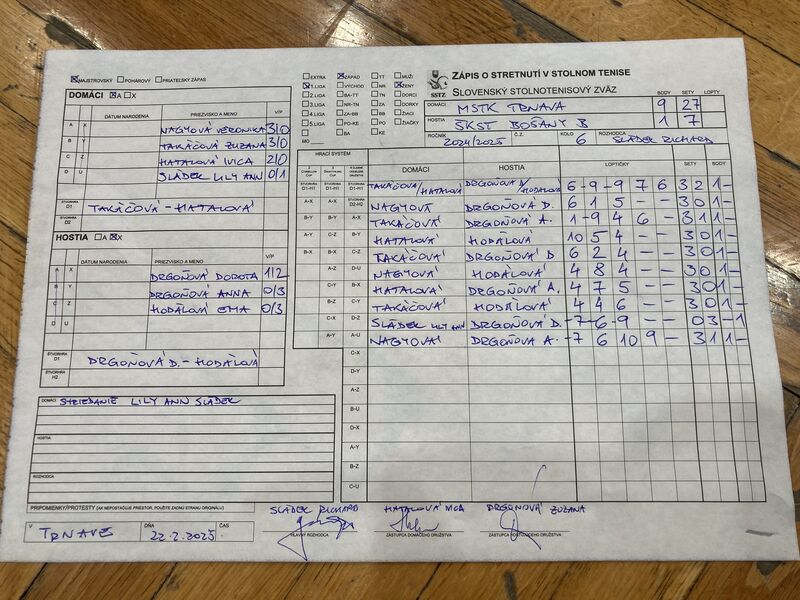 MAJSTROVSKÝ POHÁROVÝ PRIATEĽSKÝ ZÁPAS
DOMÁCI A X
DÁTUM NARODENIA PRIEZVISKO A MENO V/P
A X NAGYOVÁ VERONIKA 3/0
B Y TAKÁČOVÁ ZUZANA 3/0
C Z HATALOVÁ IVICA 2/0
D U SLÁDEK LILY ANN 0/1
ŠTVORHRA D1 TAKÁČOVÁ - HATALOVÁ
ŠTVORHRA D2
HOSTIA A X
DÁTUM NARODENIA PRIEZVISKO A MENO V/P
A X DRGOŇOVÁ DOROTA 1/2
B Y DRGOŇOVÁ ANNA 0/3
C Z HODÁLOVÁ EMA 0/3
D U
ŠTVORHRA D1 DRGOŇOVÁ D. - HODÁĽOVÁ
ŠTVORHRA H2
DOMÁCI STRIEDANIE LILY ANN SLÁDEK
HOSTIA
ROZHODCA
PRIPOMIENKY/PROTESTY (AK NEPOSTAČUJE PRIESTOR, POUŽITE ZADNÚ STRANU ORIGINÁLU)
V TRNAVE DŇA 22.2.2025 ČAS
EXTRA ZÁPAD TT MUŽI
1.LIGA VÝCHOD NR ŽENY
2.LIGA BA-TT TN DORCI
3.LIGA NR-TN ZA DORKY
4.LIGA ZA-BB BB ŽIACI
5.LIGA PO-KE PO ŽIAČKY
BA KE
MO
SSTZ
ZÁPIS O STRETNUTÍ V STOLNOM TENISE
SLOVENSKÝ STOLNOTENISOVÝ ZVÄZ
BODY SETY LOPTY
DOMÁCI MSTK TRNAVA 9 27
HOSTIA ŠKST BOŠANY B 1 7
ROČNÍK 2024/2025 Č.Z. KOLO 6 ROZHODCA SLÁDEK RICHARD
HRACÍ SYSTÉM
DOMÁCI HOSTIA LOPTIČKY SETY BODY
ŠTVORHRA D1-H1 ŠTVORHRA D1-H1 ŠTVORHRA D1-H1 TAKÁČOVÁ/HATALOVÁ DRGOŇOVÁ D/HODÁLOVÁ 6 -9 -9 7 6 3 2 1 -
A-X A-X ŠTVORHRA D2-H2 NAGYOVÁ DRGOŇOVÁ D. 6 1 5 - - 3 0 1 -
B-Y B-Y A-X TAKÁČOVÁ DRGOŇOVÁ A. 1 -9 4 6 - 3 1 1 -
A-Y C-Z B-Y HATALOVÁ HODÁLOVÁ 10 5 4 - - 3 0 1 -
B-X B-X C-Z TAKÁČOVÁ DRGOŇOVÁ D 6 2 4 - - 3 0 1 -
A-Z D-U NAGYOVÁ HODÁLOVÁ 4 8 4 - - 3 0 1 -
C-Y B-X HATALOVÁ DRGOŇOVÁ A. 4 7 5 - - 3 0 1 -
B-Z C-Y TAKÁČOVÁ HODÁLOVÁ 4 4 6 - - 3 0 1 -
C-X D-Z SLÁDEK LILY ANN DRGOŇOVÁ D. -7 -6 -9 - - 0 3 - 1
A-Y A-U NAGYOVÁ DRGOŇOVÁ A. -7 6 10 9 - 3 1 1 -
C-X
D-Y
A-Z
B-U
D-X
A-Y
B-Z
C-U
SLÁDEK RICHARD
HLAVNÝ ROZHODCA
HATALOVÁ
ZÁSTUPCA DOMÁCEHO DRUŽSTVA
DRGOŇOVÁ ZUZANA
ZÁSTUPCA HOSŤUJÚCEHO DRUŽSTVA